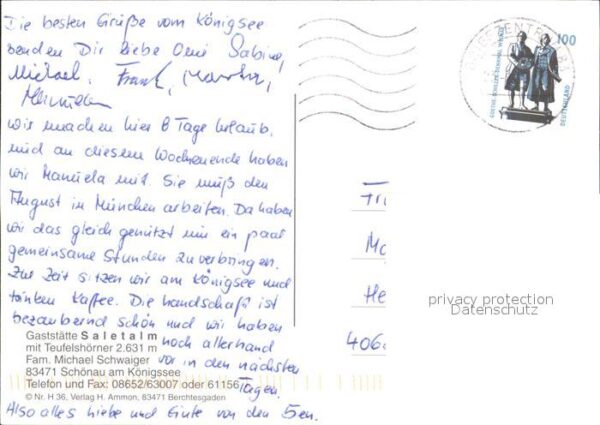 Die besten Grüße vom Königsee
senden Dir liebe Omi Sabine,
Michael, Frank, Martin,
Manuela
Wir machen hier 8 Tage Urlaub,
und an diesem Wochenende haben
wir Manuela mit. Sie muß den
August in München arbeiten. Da haben
wir das gleich genützt um ein paar
gemeinsame Stunden zu verbringen.
Zur Zeit sitzen wir am Königsee und
trinken Kaffee. Die Landschaft ist
bezaubernd schön und wir haben
noch allerhand
vor in den nächsten
Tagen.
Also alles Liebe und Gute von den 5en.
Gaststätte Saletalm
mit Teufelshörner 2.631 m
Fam. Michael Schwaiger
83471 Schönau am Königssee
Telefon und Fax: 08652/63007 oder 61156
© Nr. H 36, Verlag H. Ammon, 83471 Berchtesgaden
100
GOETHE-SCHILLER-DENKMAL WEIMAR
DEUTSCHLAND
BRIEFZENTRUM 83
He
406
privacy protection
Datenschutz